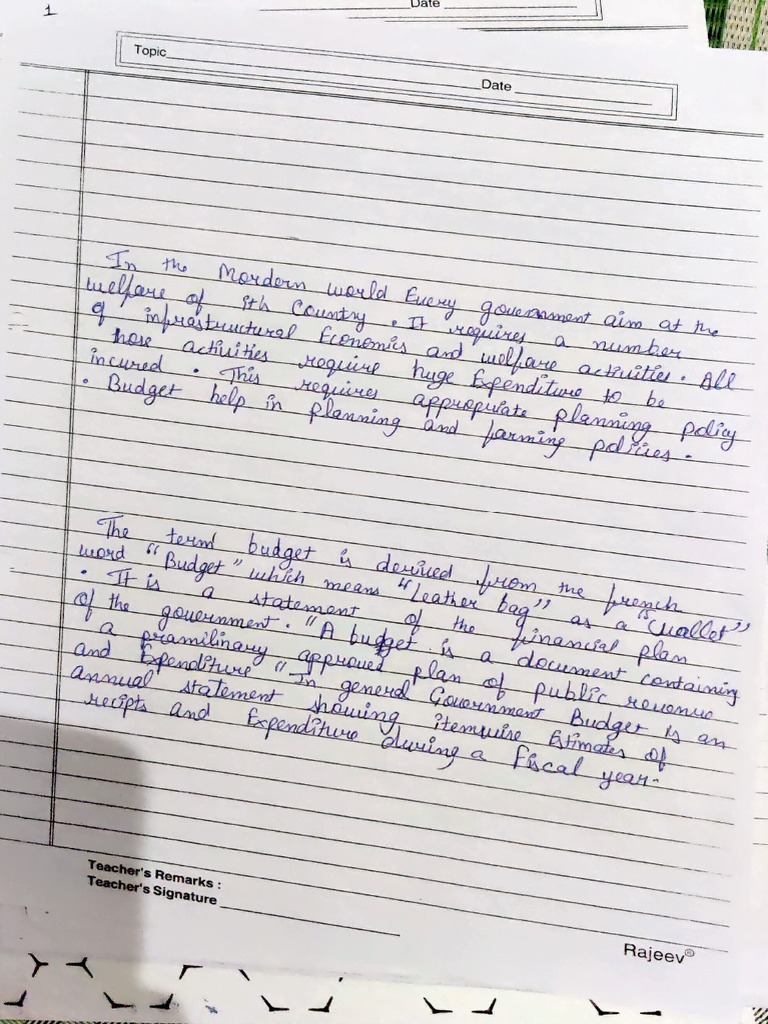 1
Date
Topic
Date
In the Mordern world Every government aim at the
welfare of its Country. It requires a number
of infrastructural Economics and welfare activities. All
hose activities require huge Expenditure to be
incured. This requires appropriate planning policy
. Budget help in planning and farming policies.
The term budget is derived from the french
word "Budget" which means "Leather bag" as a "wallet"
. It is a statement of the financial plan
of the government. "A budget is a document containing
a pramilinary approved plan of public revenue
and Expenditure "In general Government Budget is an
annual statement showing itemwise Estimates of
recipts and Expenditure during a fiscal year.
Teacher's Remarks :
Teacher's Signature
Rajeev®